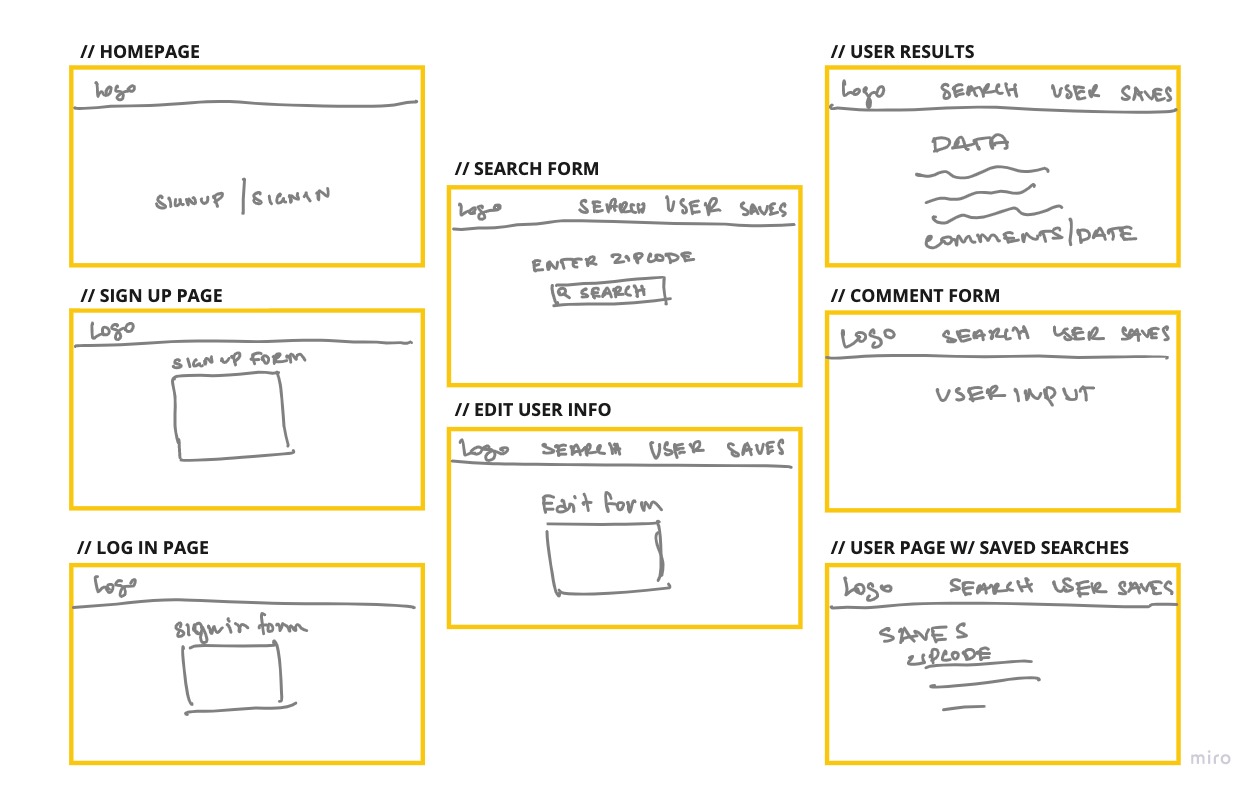 // HOMEPAGE
Logo
SIGNUP | SIGNIN
// SIGN UP PAGE
Logo
SIGN UP FORM
// LOG IN PAGE
Logo
Sign in form
// SEARCH FORM
Logo SEARCH USER SAVES
ENTER ZIPCODE
SEARCH
// EDIT USER INFO
Logo SEARCH USER SAVES
Edit form
// USER RESULTS
Logo SEARCH USER SAVES
DATA
COMMENTS/DATE
// COMMENT FORM
Logo SEARCH USER SAVES
USER INPUT
// USER PAGE W/ SAVED SEARCHES
Logo SEARCH USER SAVES
SAVES
ZIPCODE
miro